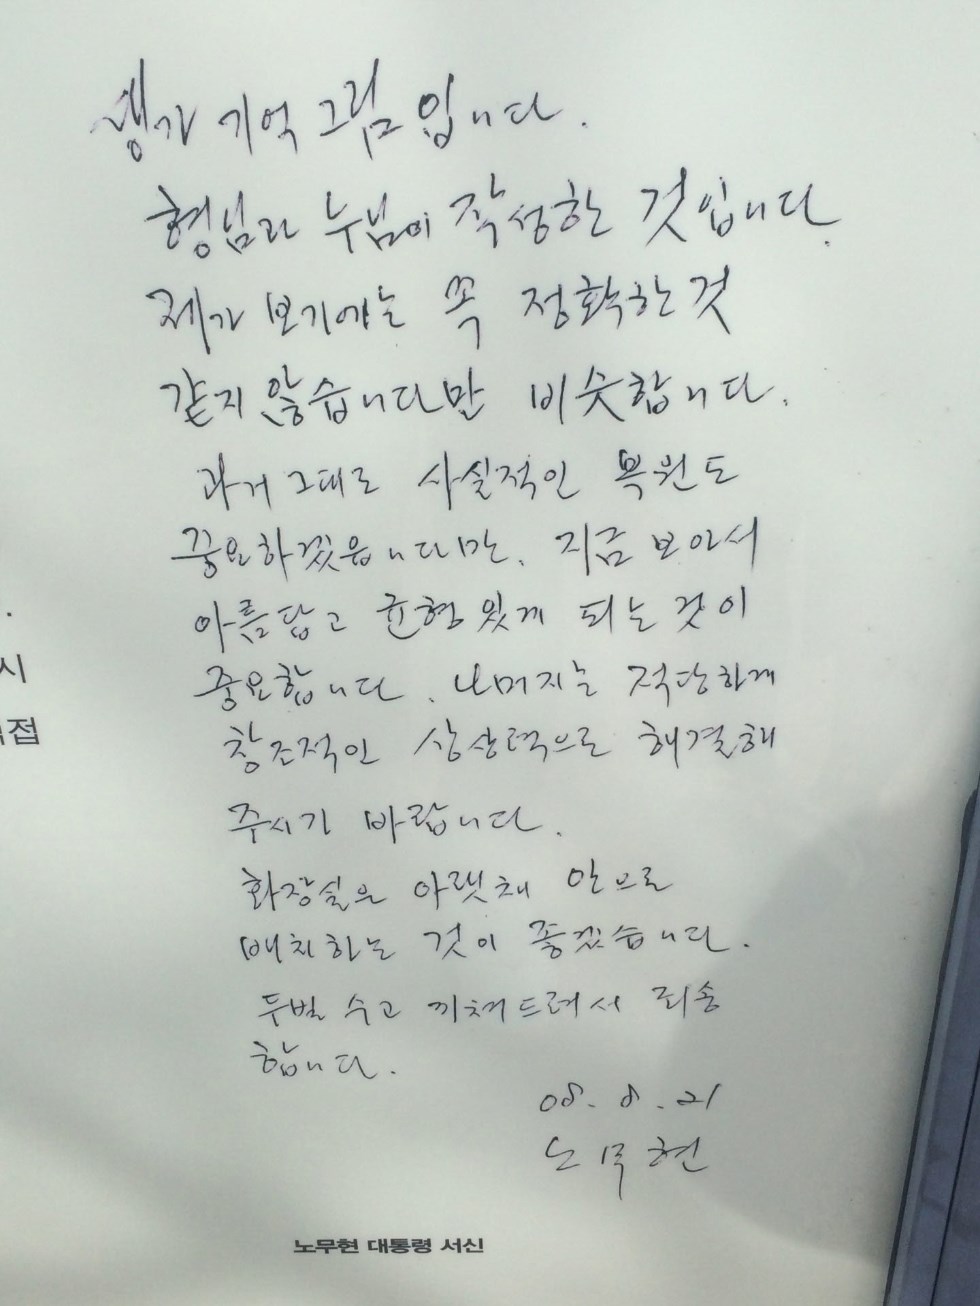 생가 기억 그림 입니다.
형님과 누님이 작성한 것입니다.
제가 보기에는 꼭 정확한 것
같지 않습니다만 비슷합니다.
과거 그대로 사실적인 복원도
중요하겠읍니다만, 지금 보아서
아름답고 균형있게 되는 것이
중요합니다. 나머지는 적당하게
창조적인 상상력으로 해결해
주시기 바랍니다.
화장실은 아랫채 안으로
배치하는 것이 좋겠습니다.
두벌 수고 끼쳐드려서 죄송
합니다.
08. 8. 21
노무현
노무현 대통령 서신
시
접